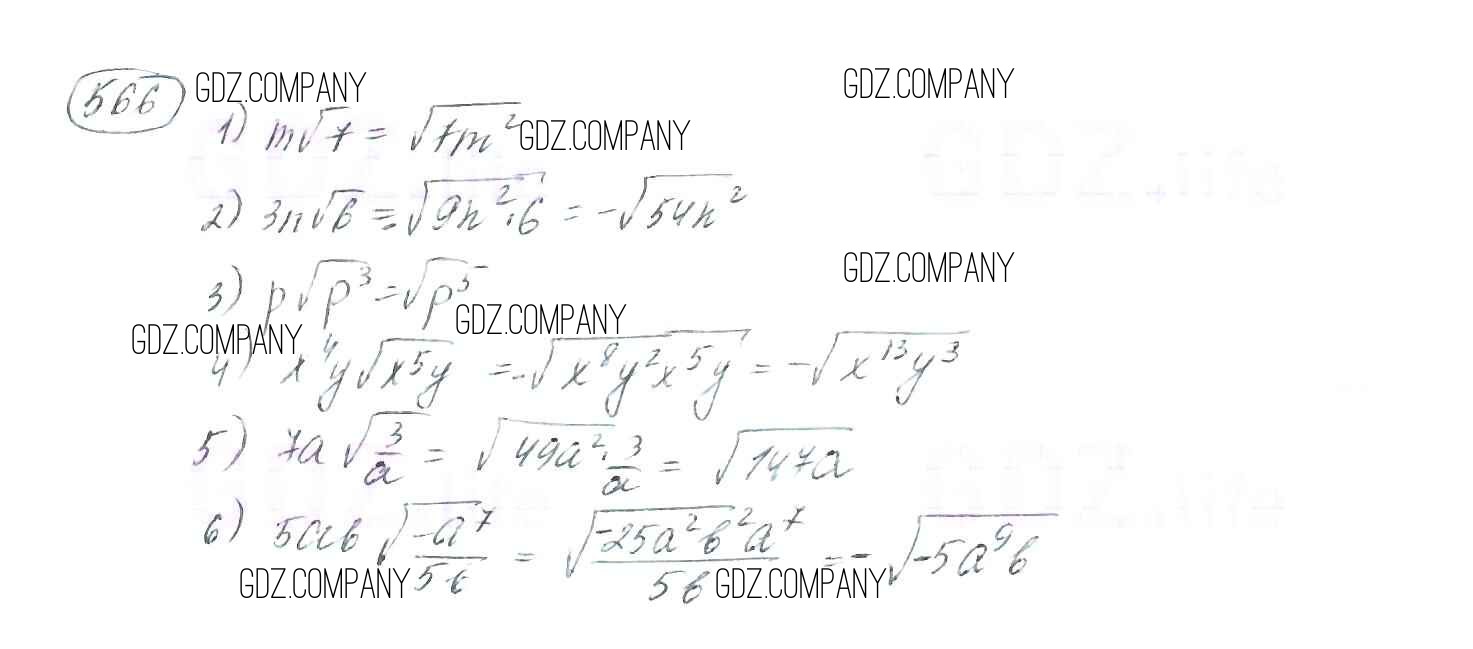 566 GDZ.COMPANY GDZ.COMPANY
1) m√7 = √7m² GDZ.COMPANY
2) 3n√6 = √9n²·6 = -√54n²
GDZ.COMPANY
3) p√p³ = √p⁵ GDZ.COMPANY
GDZ.COMPANY
4) x⁴y√x⁵y = -√x⁸y²x⁵y = -√x¹³y³
5) 7a√3/a = √49a²·3/a = √147a
6) 5ab√-a⁷/5b = √-25a²b²a⁷/5b = -√-5a⁹b
GDZ.COMPANY GDZ.COMPANY